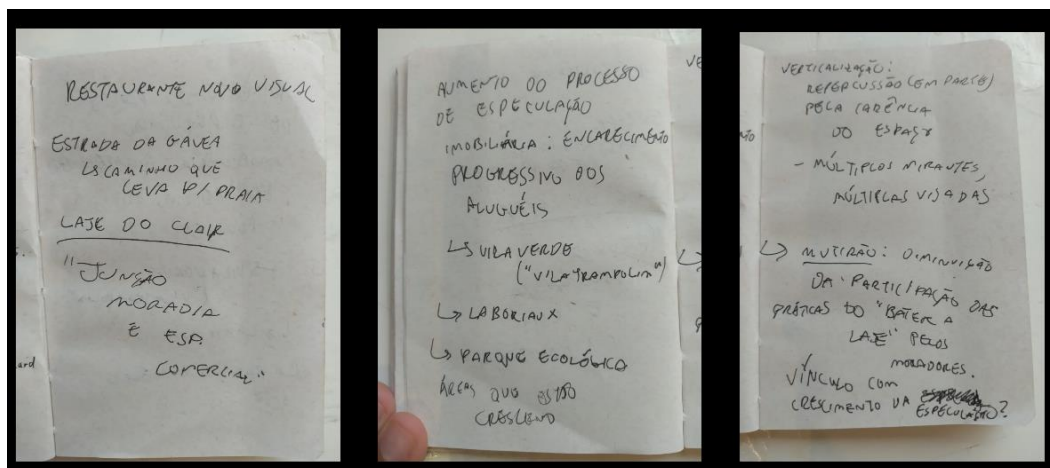 RESTAURANTE NOVO VISUAL
ESTRADA DA GÁVEA
↳ CAMINHO QUE
LEVA P/ PRAIA
LAJE DO CLAIR
"JUNÇÃO
MORADIA
E ESP.
COMERCIAL"
AUMENTO DO PROCESSO
DE ESPECULAÇÃO
IMOBILIÁRIA: ENCARECIMENTO
PROGRESSIVO DOS
ALUGUÉIS
↳ VILA VERDE
("VILA TRAMPOLIM")
↳ LABORIAUX
↳ PARQUE ECOLÓGICO
ÁREAS QUE ESTÃO
CRESCENDO
VERTICALIZAÇÃO:
REPERCUSSÃO (EM PARTE)
PELA CARÊNCIA
DO ESPAÇO
- MÚLTIPLOS MIRANTES,
MÚLTIPLAS VISADAS
↳ MUTIRÃO: DIMINUIÇÃO
DA PARTICIPAÇÃO DAS
PRÁTICAS DO "BATER A
LAJE" PELOS
MORADORES.
VÍNCULO COM
CRESCIMENTO DA
ESPECULAÇÃO?